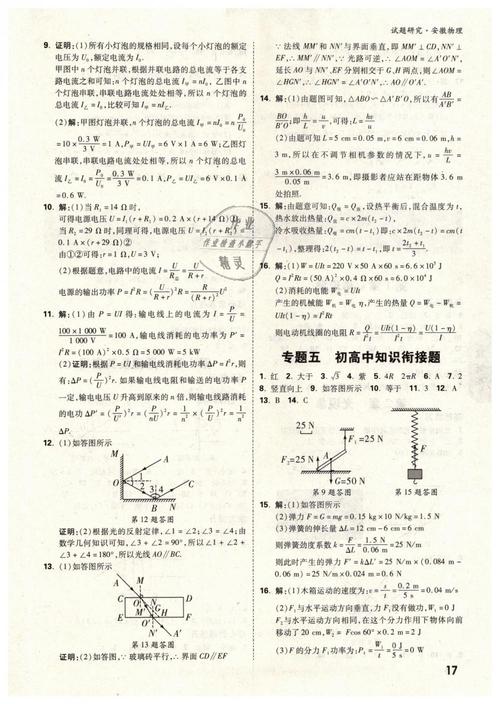 试题研究·安徽物理
9. 证明:(1)所有小灯泡的规格相同,设每个小灯泡的额定
电压为U₀,额定电流为I₀。
甲图中n个灯泡并联,根据并联电路的总电流等于各支
路电流之和可知:n个灯泡的总电流I甲=nI₀,乙图中n
个灯泡串联,串联电路电流处处相等,所以n个灯泡的
总电流I乙=I₀,比较可知I甲=nI乙。
(2)解:甲图灯泡并联,n个灯泡的总电流I甲=nI₀=n P₀/U₀
=10× 0.3 W/3 V =1 A,P甲=UI甲=6 V×1 A=6 W;乙图灯
泡串联,串联电路电流处处相等,所以n个灯泡的总电
流I乙=I₀= P₀/U₀ = 0.3 W/3 V =0.1 A,P乙=UI乙=6 V×0.1 A
=0.6 W.
10. 解:(1)当R₁=14 Ω时,
可得电源电压U=I₁(r+R₁)=0.2 A×(r+14 Ω)①
当R₂=29 Ω时,同理可得,电源电压U=
0.1 A×(r+29 Ω)②
由①②可得:r=1 Ω,U=3 V;
(2)根据题意,电路中的电流I= U/R总 = U/(R+r)
电源的输出功率P=I²R=( U/(R+r) )²R= U²R/(R+r)²
11. 解:(1)由P=UI得:输电线上的电流为I= P/U =
100×1 000 W/1 000 V =100 A,输电线消耗的电功率为P′=
I²R=(100 A)²×0.5 Ω=5 000 W=5 kW
(2)证明:根据P=UI和输电线消耗的电功率ΔP=I²r,则
有:ΔP=( P/U )²r.如果输电线电阻和输送的电功率P
一定,输电电压U升高到原来的n倍,则输电线路消耗
的电功ΔP′=( P/U′ )²r=( P/nU )²r= 1/n² ×( P/U )²r= 1/n²
ΔP.
12. (1)如答图所示
M
A
O
1
2
3
4
B
C
第12题答图
证明:(2)根据光的反射定律,∠1=∠2;∠3=∠4;由
数学几何知识可知,∠3+∠2=90°,所以∠1+∠2+
∠3+∠4=180°,所以光线AO∥BC.
13. (1)如答图所示
A
M
C
O
D
E
G
H
F
N
N′
A′
第13题答图
证明:(2)如答图,∵玻璃砖平行,∴界面CD∥EF
∵法线MM′和NN′与界面垂直,即MM′⊥CD,NN′⊥
EF,∴MM′∥NN′ ∵光路可逆,∴∠AOM=∠A′O′N′,
延长AO与NN′、EF分别相交于G、H两点,则∠AOM=
∠HGN′,∴∠HGN′=∠A′O′N′,∴AO∥A′O′
14. 解:(1)由题图可知,△ABO∽△A′B′O,所以有 AB/A′B′ =
BO/B′O ,即 h/L = u/v ,可得:L= hv/u
(2)由题可知L=5 cm=0.05 m,v=6 cm=0.06 m,h=
3 m,所以在不调节相机参数的情况下,u= hv/L =
3 m×0.06 m/0.05 m =3.6 m,即摄影者应站在距物体3.6 m
处拍照.
15. 证明:由题意可知:Q吸=Q放,设热平衡后,混合温度为t,
热水放出热量:Q放=c×2m(t₂-t),
冷水吸收热量:Q吸=cm(t-t₁)即:c×2m(t₂-t)=cm(t
-t₁),整理得:2(t₂-t)=t-t₁,即t= (2t₂+t₁)/3 .
16. 解:(1)W=UIt=220 V×50 A×60 s=6.6×10⁵ J
Q=I²Rt=(50 A)²×0.4 Ω×60 s=6.0×10⁴ J
(2)消耗的电能W电=UIt
产生的机械能W机=W电η,产生的热量Q=W电-W机=
UIt(1-η)
则电动机线圈的电阻R= Q/I²t = UIt(1-η)/I²t = U(1-η)/I
专题五 初高中知识衔接题
1. 红 2. 大 3. √3 4. 紫 5. 4R 2πR 6. A 7. 2
8. 竖直向上 9. 如答图所示 10. 等于 11. 3 12. A
13. B 14. C
25 N
F₁=25 N
F₂=25 N
G=50 N
第9题答图
第15题答图
15. 解:(1)如答图所示
(2)弹力F=G=mg=0.15 kg×10 N/kg=1.5 N
(3)弹簧的伸长量ΔL=12 cm-6 cm=6 cm
则弹簧劲度系数k= F/ΔL = 1.5 N/0.06 m =25 N/m
则此时产生的弹力F′=kΔL′=25 N/m×(0.084 m-
0.06 m)=25 N/m×0.024 m=0.6 N
16. 解:(1)木箱运动的速度为:v= s/t = 0.2 m/5 s =0.04 m/s
(2)F₁与水平运动方向垂直,力F₁没有做功,W₁=0 J
F₂与水平运动方向一致,在这个分力作用下物体向前
移动了20 cm,W₂=Fcos60°×0.2 m=2 J
(3)F的分力F₁功率为:P₁= W₁/t = 0 J/5 s =0 W
作业精灵
17